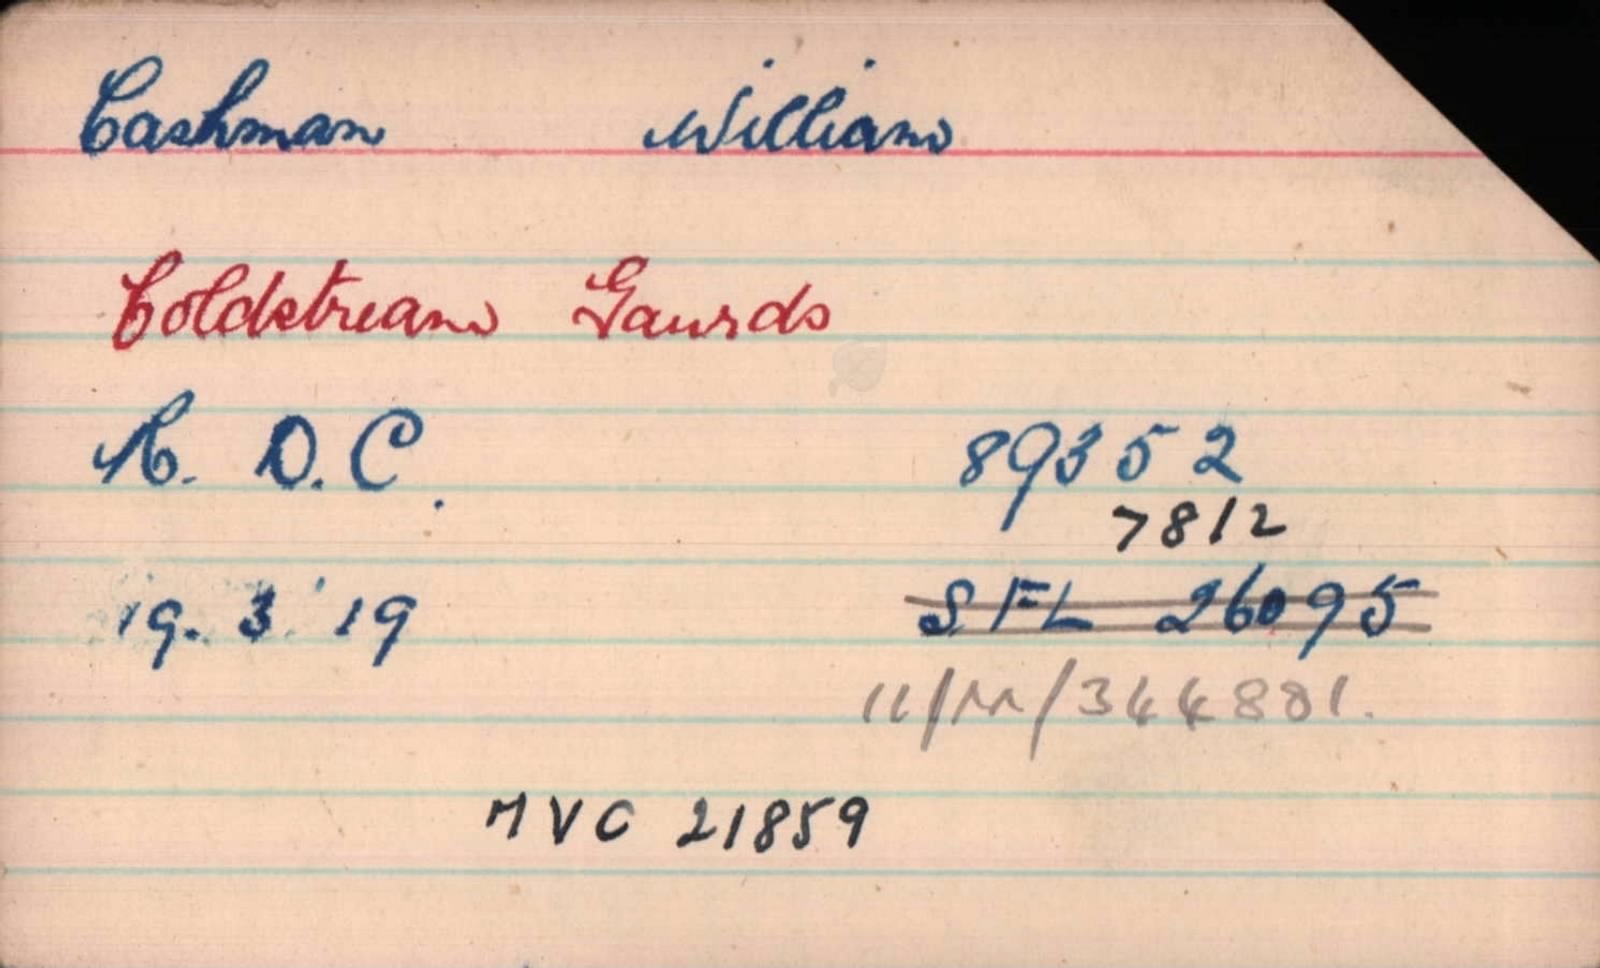 Cashman William
Coldstream Gaurds
A. O. C. 89352
7812
19. 3. 19 SFL 26095
11/M/344881.
MVC 21859